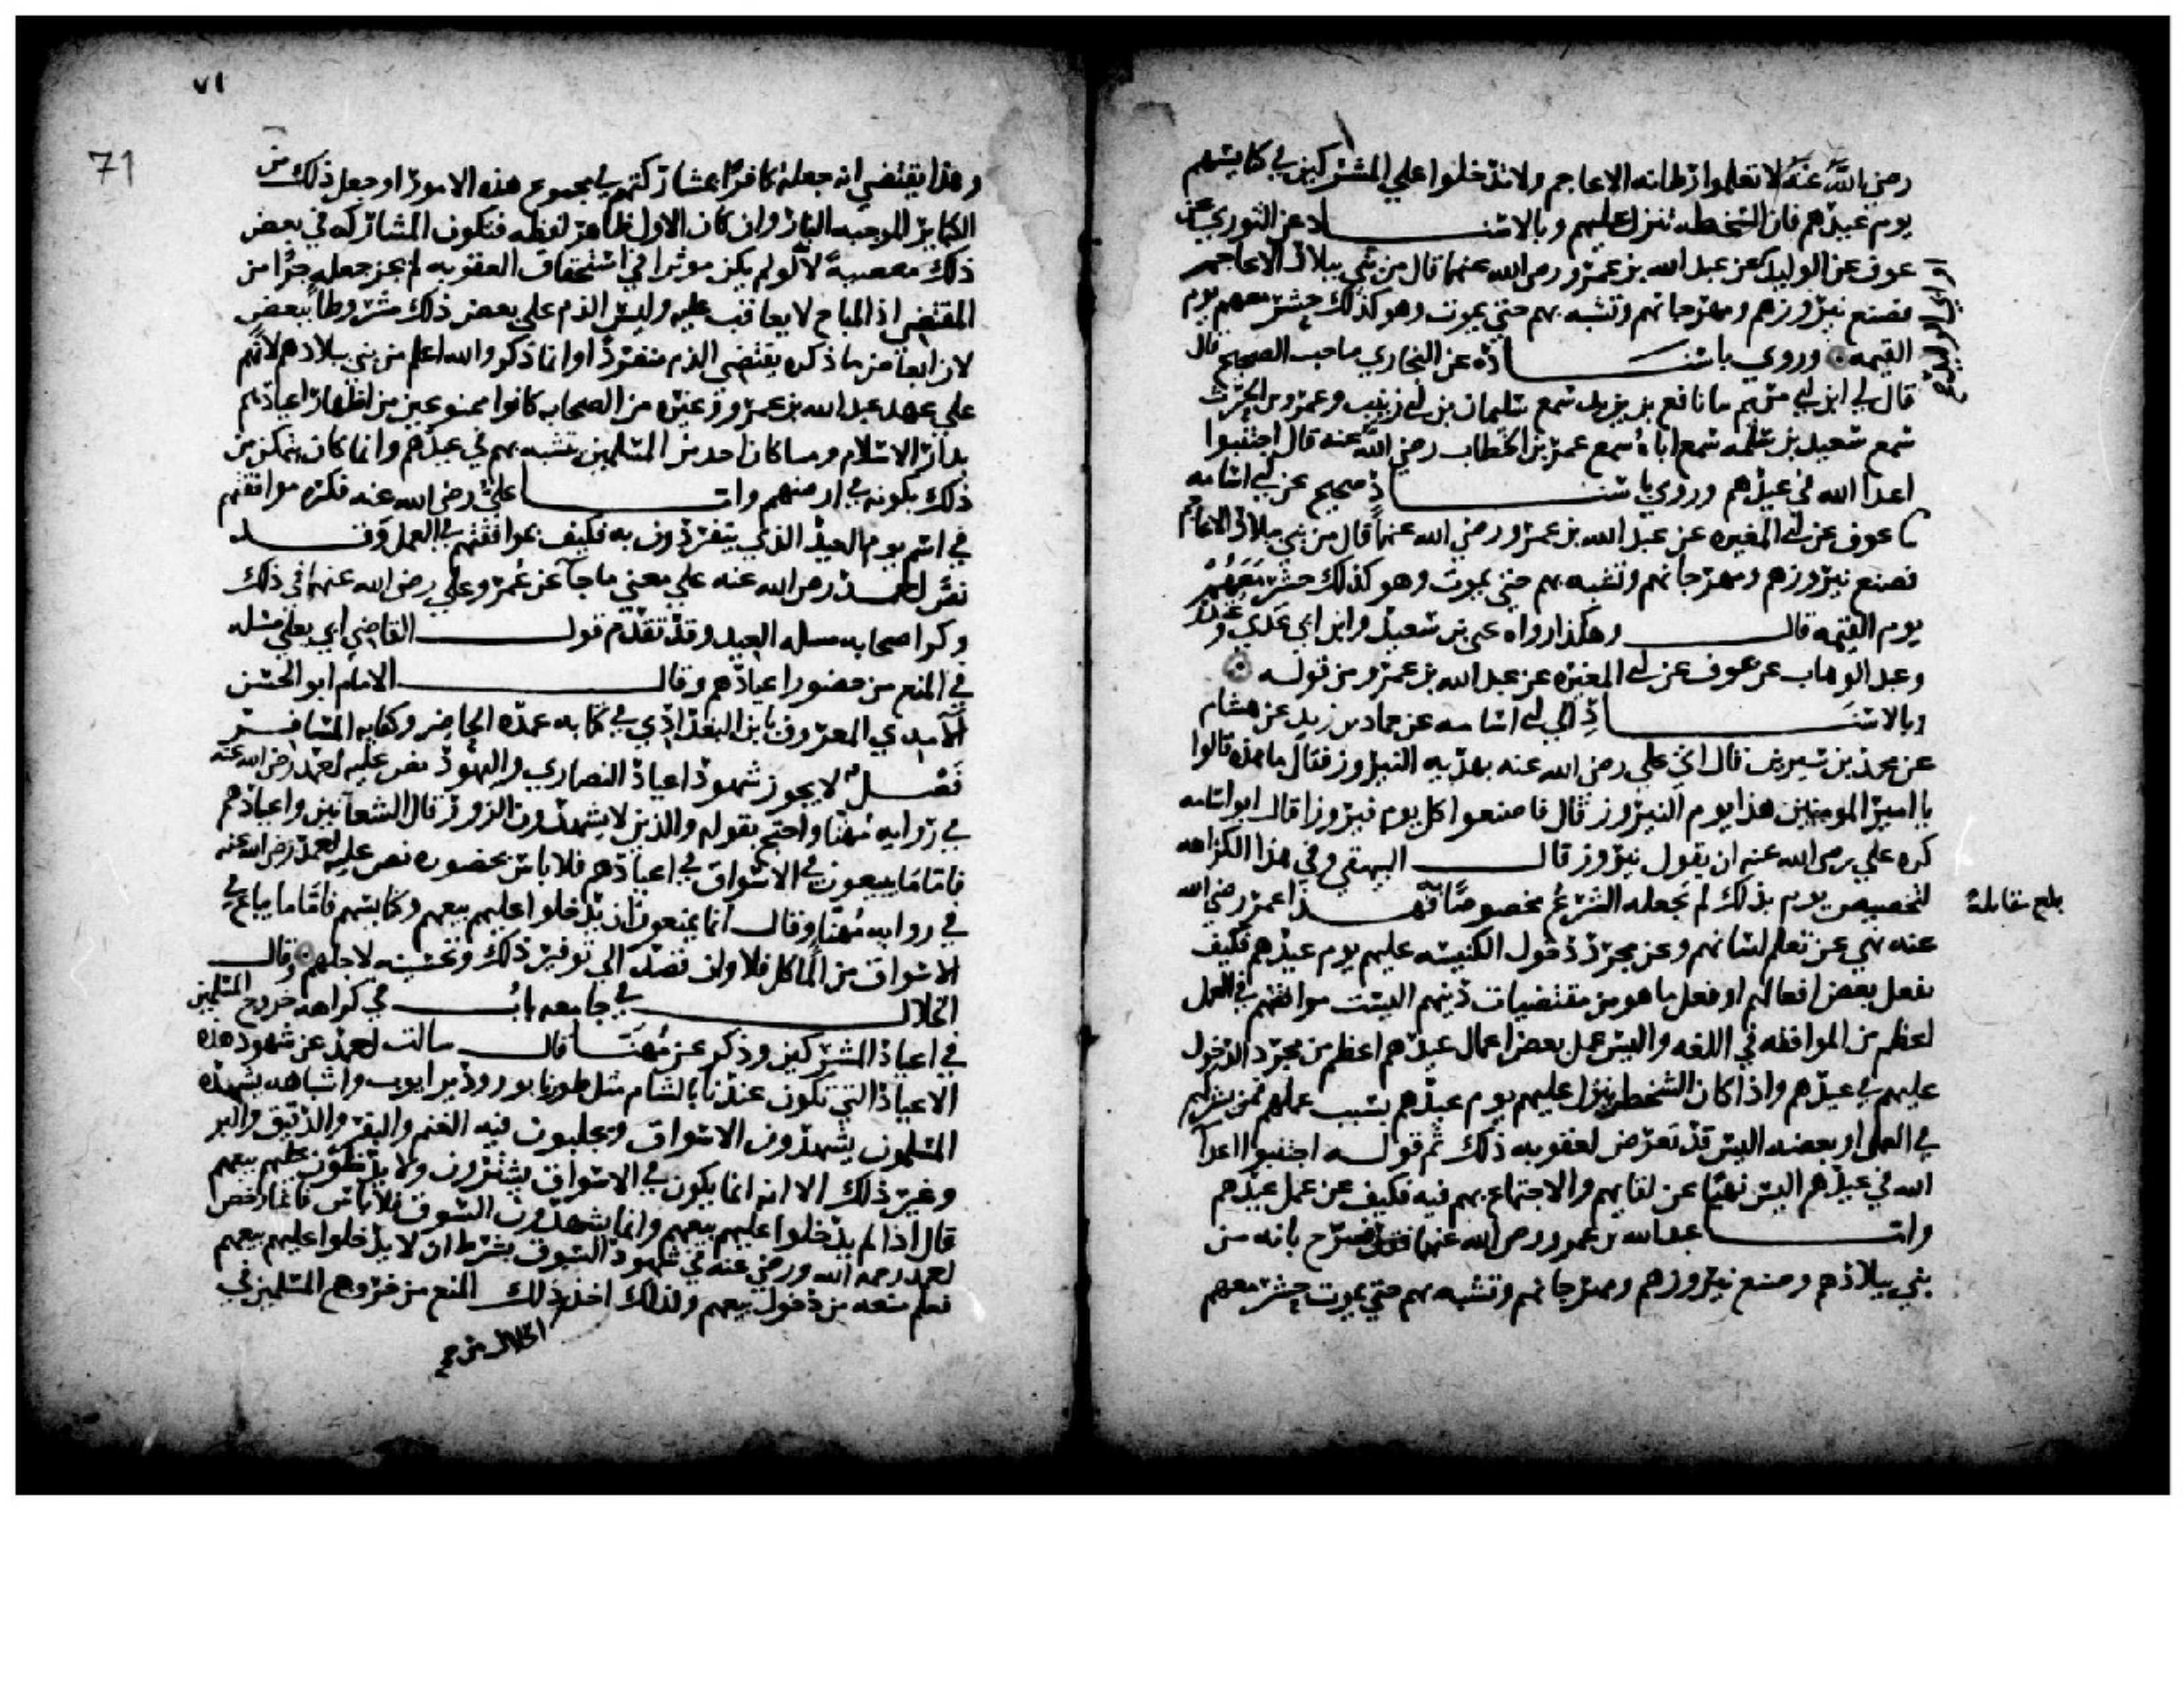 رضي الله عنه لا تعلموا رطانه الاعاجم ولا تدخلوا علي المشركين في كنايسهم
يوم عيدهم فان السخطه تنزل عليهم وبالاسناد عن الثوري عن
عوف عن الوليد عن عبد الله بن عمرو رضي الله عنهما قال من بني ببلاد الاعاجم
فصنع نيروزهم ومهرجانهم وتشبه بهم حتي يموت وهو كذلك حشر معهم يوم
القيمه وروي باسناده عن البخاري صاحب الصحيح قال
قال لي ابن ابي مريم ما نافع بن يزيد سمع سليمان بن ابي زينب وعمرو بن الحرث
سمع سعيد بن سلمه سمع اباه سمع عمر بن الخطاب رضي الله عنه قال اجتنبوا
اعدا الله في عيدهم وروي باسناد صحيح عن ابي اسامه
ما عوف عن ابي المغيره عن عبد الله بن عمرو رضي الله عنهما قال من بني ببلاد الاعاجم
فصنع نيروزهم ومهرجانهم وتشبه بهم حتي يموت وهو كذلك حشر معهم
يوم القيمه قال وهكذا رواه يحي بن سعيد وابن ابي عدي وغندر
وعبد الوهاب عن عوف عن ابي المغيره عن عبد الله بن عمرو من قوله
وبالاسناد الي ابي اسامه عن حماد بن زيد عن هشام
عن محمد بن سيرين قال اتي علي رضي الله عنه بهديه النيروز فقال ما هذه قالوا
يا امير المومنين هذا يوم النيروز قال فاصنعوا كل يوم نيروزا قال ابو اسامه
كره علي رضي الله عنه ان يقول نيروز قال البيهقي وفي هذا الكراهه
لتخصيص يوم بذلك لم يجعله الشرع مخصوصا به فهذا عمر رضي الله
عنه نهي عن تعلم لسانهم وعن مجرد دخول الكنيسه عليهم يوم عيدهم فكيف
بفعل بعض افعالهم او فعل ما هو من مقتضيات دينهم اليست موافقتهم في العمل
اعظم من الموافقه في اللغه واليس عمل بعض اعمال عيدهم اعظم من مجرد الدخول
عليهم في عيدهم واذا كان السخط ينزل عليهم يوم عيدهم بسبب عملهم فمن يشركهم
في العمل او بعضه اليس قد تعرض لعقوبه ذلك ثم قوله اجتنبوا اعدا
الله في عيدهم اليس نهيا عن لقايهم والاجتماع بهم فيه فكيف عن عمل عيدهم
واما عبد الله بن عمرو رضي الله عنهما فقد صرح بانه من
بني ببلادهم وصنع نيروزهم ومهرجانهم وتشبه بهم حتي يموت حشر معهم
بلغ مقابلة
٧١
71
وهذا يقتضي انه جعله كافرا بمشاركتهم في مجموع هذه الامور او جعل ذلك من
الكباير الموجبه النار وان كان الاول ظاهر لفظه فتكون المشاركه في بعض
ذلك معصية لانه لو لم يكن موثرا في استحقاق العقوبه لم يجز جعله جزا من
المقتضي اذ المباح لا يعاقب عليه وليس الذم علي بعض ذلك مشروطا ببعض
لان ابعاض ما ذكره يقتضي الذم منفردا وانما ذكر والله اعلم من بني ببلادهم لانهم
علي عهد عبد الله بن عمرو وغيره من الصحابه كانوا ممنوعين من اظهار اعيادهم
بدار الاسلام وما كان احد من المسلمين يتشبه بهم في عيدهم وانما كان يتمكن من
ذلك بكونه في ارضهم واما علي رضي الله عنه فكره موافقتهم
في اسم يوم العيد الذي ينفردون به فكيف بموافقتهم في العمل وقد
نص احمد رضي الله عنه علي معني ما جآ عن عمر وعلي رضي الله عنهما في ذلك
وذكر اصحابه مسله العيد وقد تقدم قول القاضي ابي يعلي مسله
في المنع من حضور اعيادهم وقال الامام ابو الحسن
الآمدي المعروف بابن البغدادي في كتابه عمده الحاضر وكفايه المسافر
فصل لا يجوز شهود اعياد النصاري واليهود نص عليه احمد رضي الله عنه
في روايه مهنا واحتج بقوله والذين لا يشهدون الزور قال الشعانين واعيادهم
فاما ما يبيعون في الاسواق في اعيادهم فلا باس بحضوره نص عليه احمد رضي الله عنه
في روايه مهنا وقال انما يمنعون ان يدخلوا عليهم بيعهم وكنايسهم فاما ما يباع في
الاسواق من الماكل فلا وان قصد الي توفير ذلك وتحسينه لاجلهم وقال
الخلال في جامعه باب في كراهه خروج المسلمين
في اعياد المشركين وذكر عن مهنا قال سالت احمد عن شهود هذه
الاعياد التي تكون عندنا بالشام مثل طورنابور ودير ايوب واشباهه يشهده
المسلمون يشهدون الاسواق ويجلبون فيه الغنم والبقر والدقيق والبر
وغير ذلك الا انه انما يكون في الاسواق يشترون ولا يدخلون عليهم بيعهم
قال اذا لم يدخلوا عليهم بيعهم وانما يشهدون السوق فلا باس فانما رخص
احمد رحمه الله ورضي عنه في شهود السوق بشرط ان لا يدخلوا عليهم بيعهم
فعلم منعه من دخول بيعهم وكذلك اخذ ذلك المنع من خروج المسلمين في